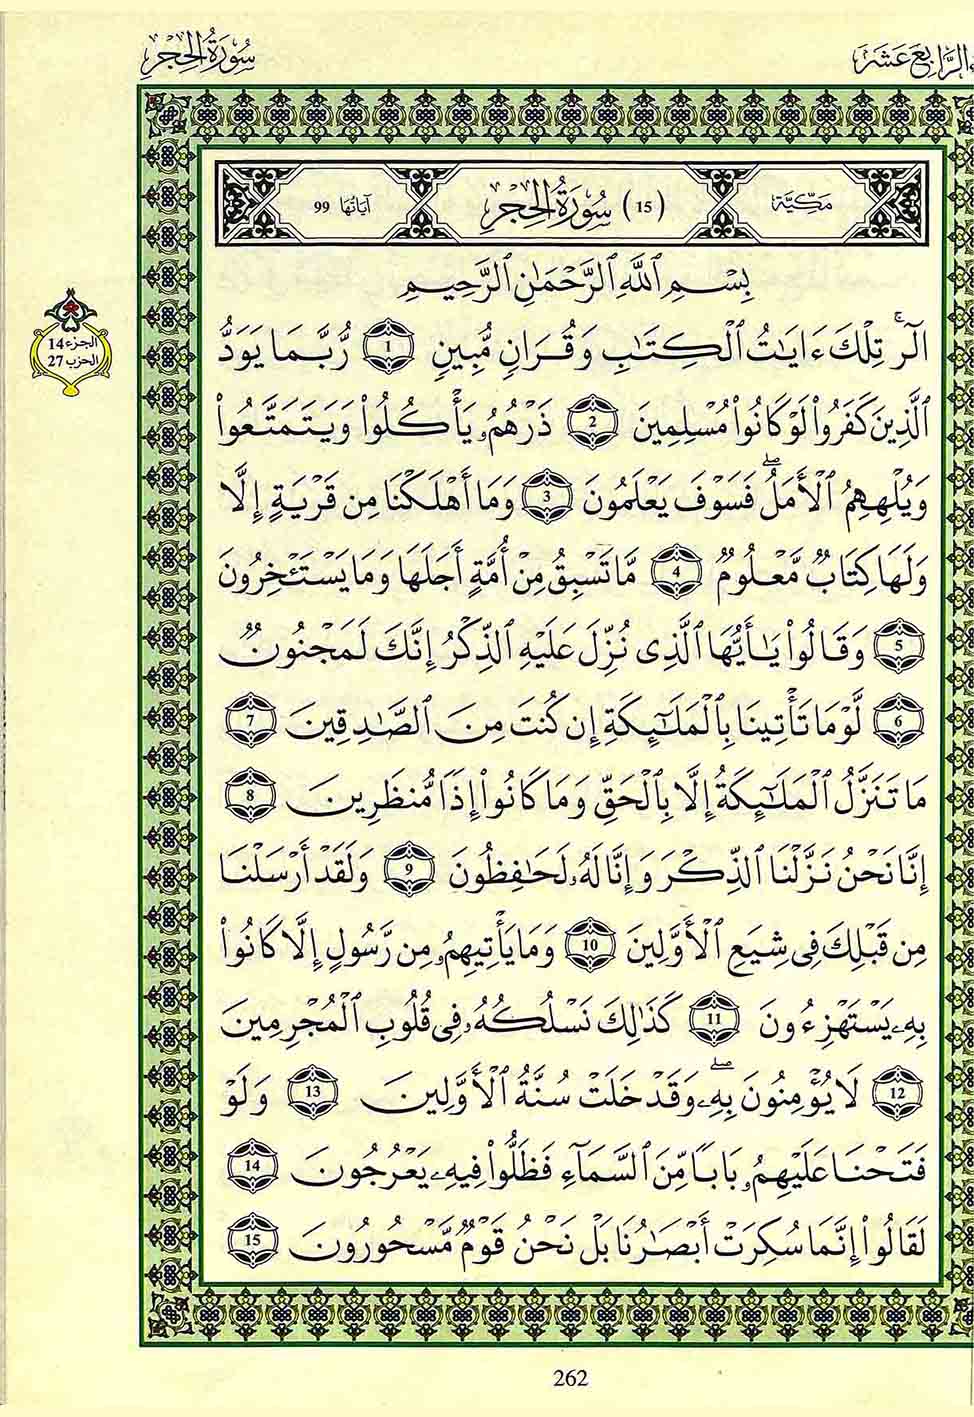 الرَّابِعَ عَشَرَ
سُورَةُ الحِجْرِ
مَكِّيَّة (15) سُورَةُ الحِجْرِ آيَاتُهَا 99
بِسْمِ ٱللَّهِ ٱلرَّحْمَٰنِ ٱلرَّحِيمِ
الجزء 14
الحزب 27
الٓرۚ تِلْكَ ءَايَٰتُ ٱلْكِتَٰبِ وَقُرَانٍ مُّبِينٍ 1 رُّبَّمَا يَوَدُّ
ٱلَّذِينَ كَفَرُواْ لَوْ كَانُواْ مُسْلِمِينَ 2 ذَرْهُمُۥ يَأْكُلُواْ وَيَتَمَتَّعُواْ
وَيُلْهِهِمُ ٱلْأَمَلُۖ فَسَوْفَ يَعْلَمُونَ 3 وَمَا أَهْلَكْنَا مِن قَرْيَةٍ إِلَّا
وَلَهَا كِتَابٌ مَّعْلُومٌ 4 مَّا تَسْبِقُ مِنْ أُمَّةٍ أَجَلَهَا وَمَا يَسْتَـْٔخِرُونَ
5 وَقَالُواْ يَٰأَيُّهَا ٱلَّذِى نُزِّلَ عَلَيْهِ ٱلذِّكْرُ إِنَّكَ لَمَجْنُونٌ
6 لَّوْ مَا تَأْتِينَا بِٱلْمَلَٰٓئِكَةِ إِن كُنتَ مِنَ ٱلصَّٰدِقِينَ 7
مَا تَنَزَّلُ ٱلْمَلَٰٓئِكَةُ إِلَّا بِٱلْحَقِّ وَمَا كَانُواْ إِذًا مُّنظَرِينَ 8
إِنَّا نَحْنُ نَزَّلْنَا ٱلذِّكْرَ وَإِنَّا لَهُۥ لَحَٰفِظُونَ 9 وَلَقَدْ أَرْسَلْنَا
مِن قَبْلِكَ فِى شِيَعِ ٱلْأَوَّلِينَ 10 وَمَا يَأْتِيهِمُۥ مِن رَّسُولٍ إِلَّا كَانُواْ
بِهِۦ يَسْتَهْزِءُونَ 11 كَذَٰلِكَ نَسْلُكُهُۥ فِى قُلُوبِ ٱلْمُجْرِمِينَ
12 لَا يُؤْمِنُونَ بِهِۦۖ وَقَدْ خَلَتْ سُنَّةُ ٱلْأَوَّلِينَ 13 وَلَوْ
فَتَحْنَا عَلَيْهِمُۥ بَابًا مِّنَ ٱلسَّمَآءِ فَظَلُّواْ فِيهِۦ يَعْرُجُونَ 14
لَقَالُواْ إِنَّمَا سُكِرَتْ أَبْصَٰرُنَا بَلْ نَحْنُ قَوْمٌ مَّسْحُورُونَ 15
262